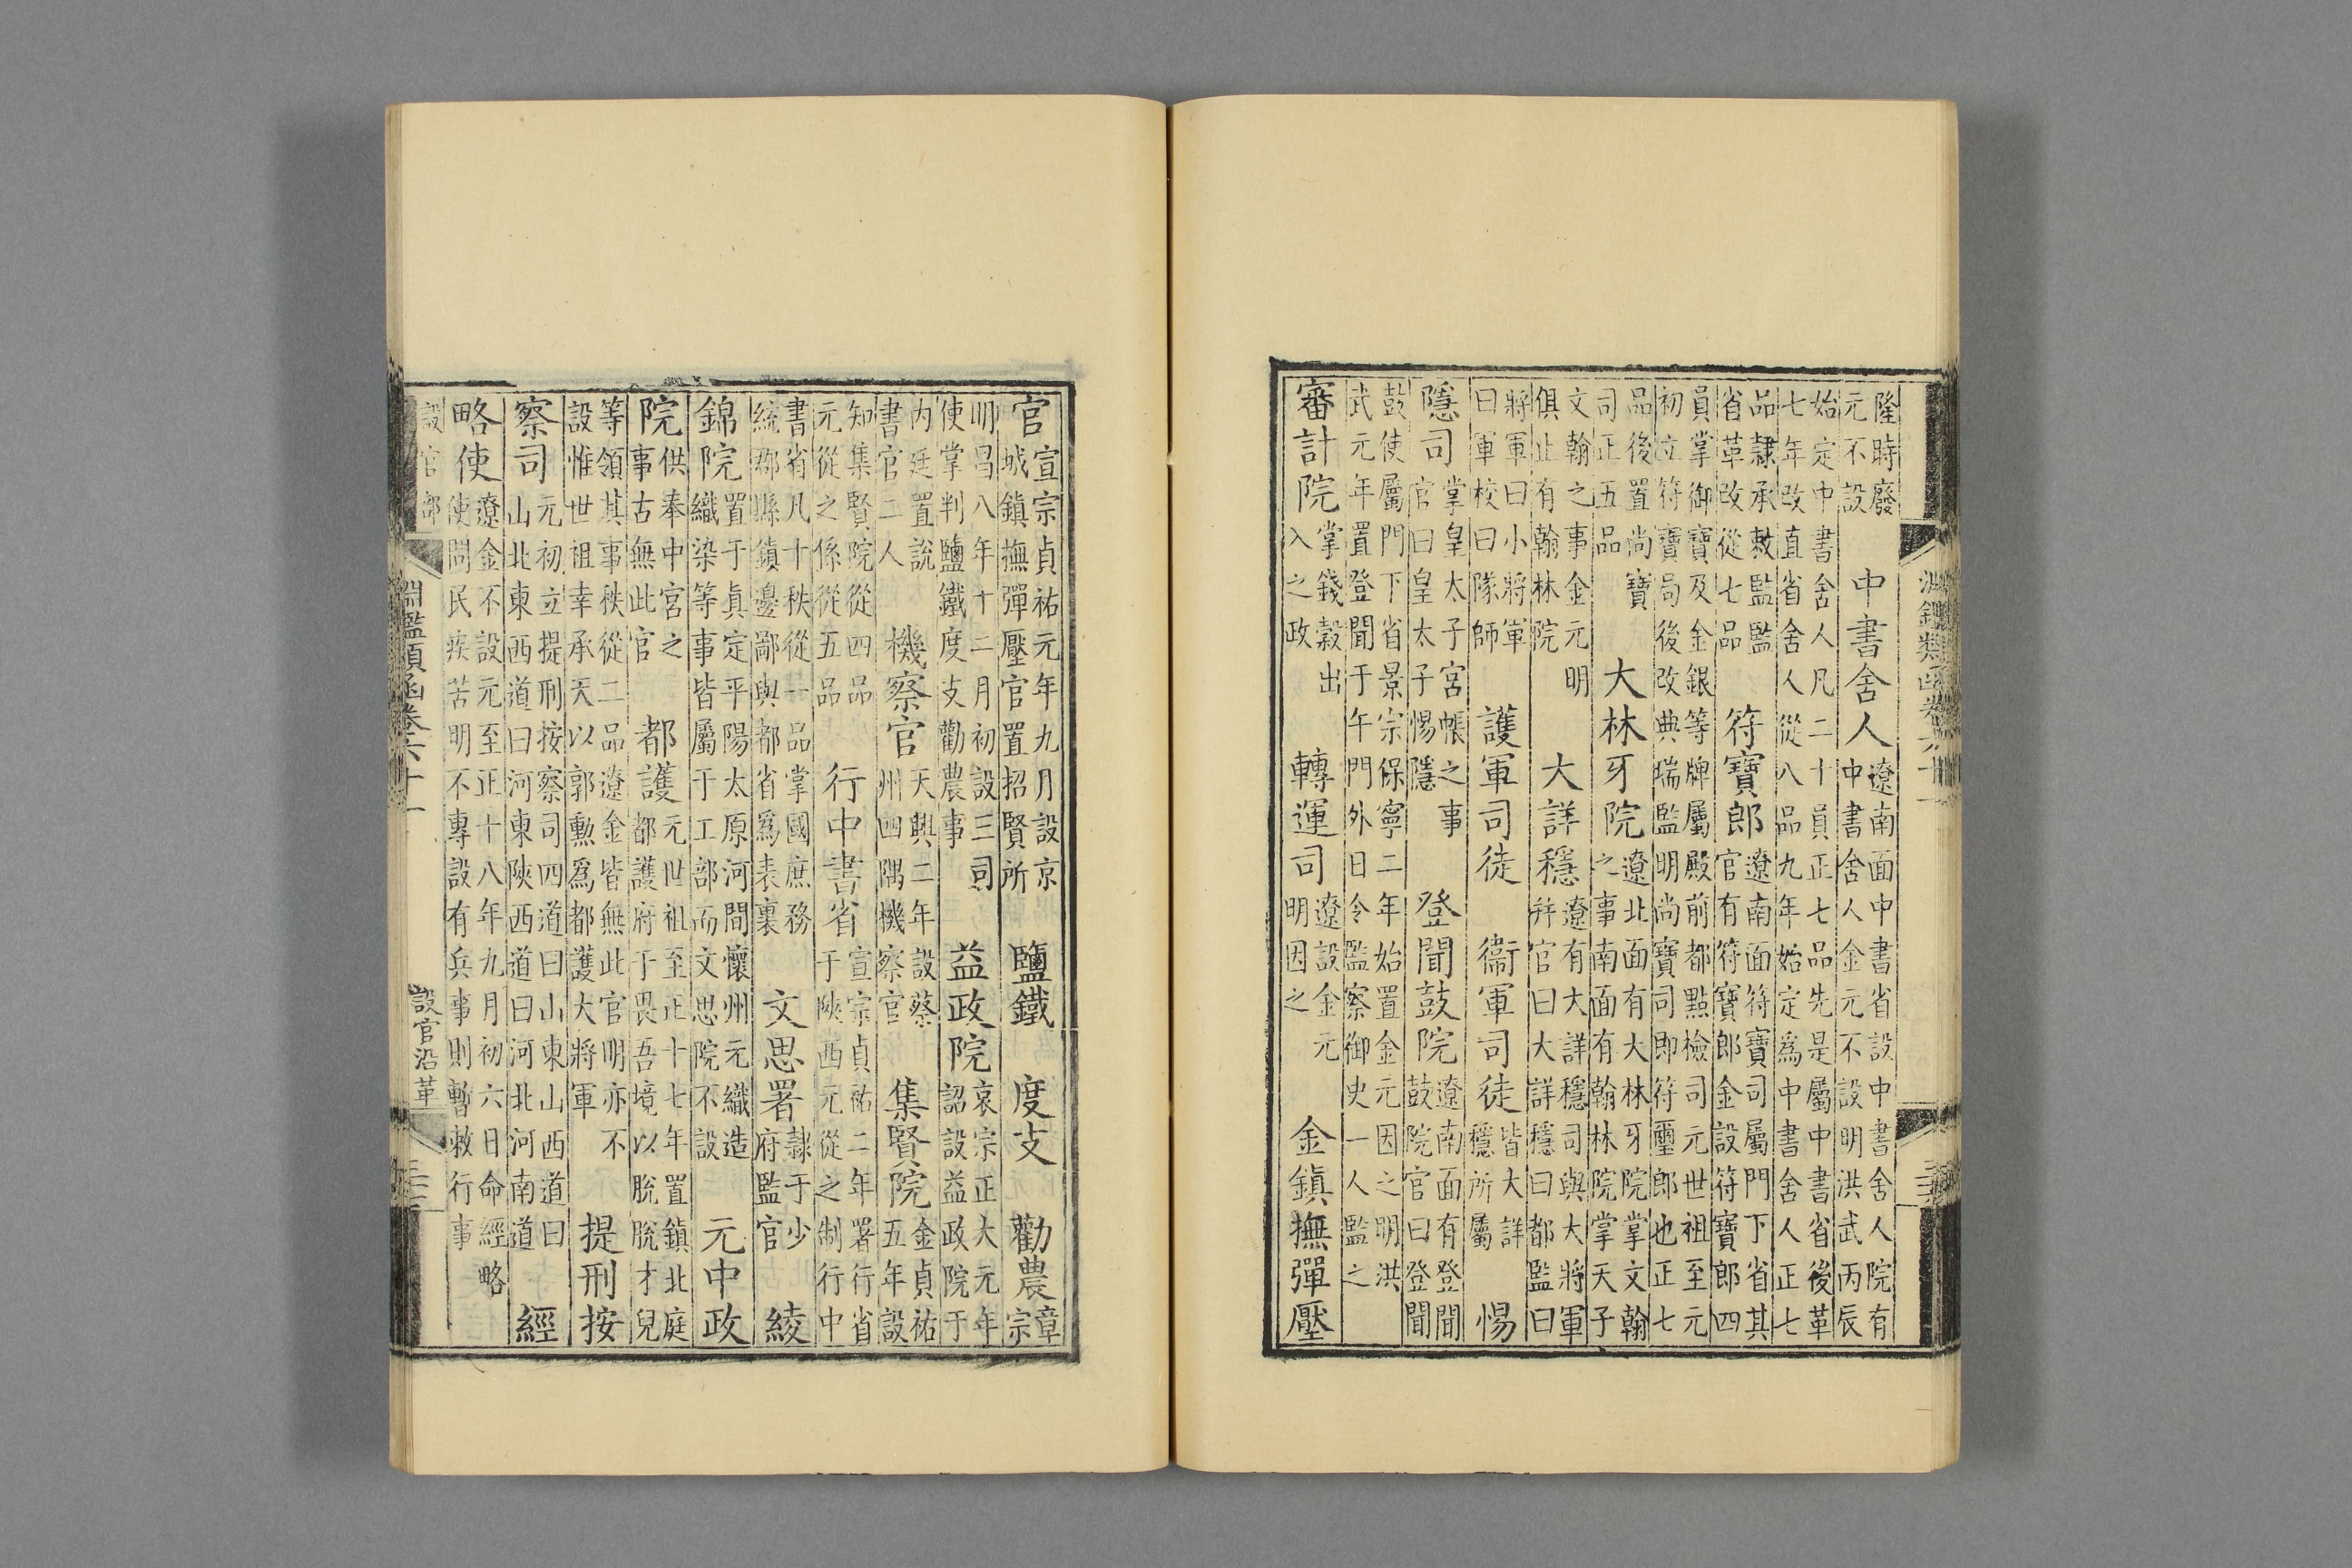 淵鑑類函卷六十一
隆時廢元不設 中書舍人 遼南面中書省設中書舍人院有中書舍人金元不設明洪武丙辰
始定中書舍人凡二十員正七品先是屬中書省後革七年改直省舍人從八品九年始定爲中書舍人正七
品隸承敕監監省革改從七品 符寶郎 遼南面符寶司屬門下省其官有符寶郎金設符寶郎四
員掌御寶及金銀等牌屬殿前都點檢司元世祖至元初立符寶局後改典瑞監明尚寶司即符璽郎也正七
品後置尚寶司正五品 大林牙院 遼北面有大林牙院掌文翰之事南面有翰林院掌天子
文翰之事金元明俱止有翰林院 大詳穩 遼有大詳穩司與大將軍并官曰大詳穩曰都監曰
將軍曰小將軍曰軍校曰隊師 護軍司徒 衞軍司徒 皆大詳穩所屬 惕
隱司 掌皇太子宮帳之事官曰皇太子惕隱 登聞鼓院 遼南面有登聞鼓院官曰登聞
鼓使屬門下省景宗保寧二年始置金元因之明洪武元年置登聞于午門外日令監察御史一人監之
審計院 掌錢穀出入之政 轉運司 遼設金元明因之 金鎮撫彈壓
官 宣宗貞祐元年九月設京城鎮撫彈壓官置招賢所 鹽鐵 度支 勸農 章宗
明昌八年十二月初設三司使掌判鹽鐵度支勸農事 益政院 哀宗正大元年詔設益政院于
內廷置說書官二人 機察官 天興二年設蔡州四隅機察官 集賢院 金貞祐五年設
知集賢院從四品元從之係從五品 行中書省 宣宗貞祐二年署行省于陝西元從之制行中
書省凡十秩從一品掌國庶務統郡縣鎮邊鄙與都省爲表裏 文思署 隸于少府監官 綾
錦院 置于眞定平陽太原河間懷州元織造織染等事皆屬于工部而文思院不設 元中政
院 供奉中宮之事古無此官 都護 元世祖至正十七年置鎮北庭都護府于畏吾境以脫脫才兒
等領其事秩從二品遼金皆無此官明亦不設惟世祖幸承天以郭勳爲都護大將軍 提刑按
察司 元初立提刑按察司四道曰山東山西道曰山北東西道曰河東陝西道曰河北河南道 經
略使 遼金不設元至正十八年九月初六日命經略使問民疾苦明不專設有兵事則暫敕行事
設官部
淵鑑類函卷六十一 設官沿革